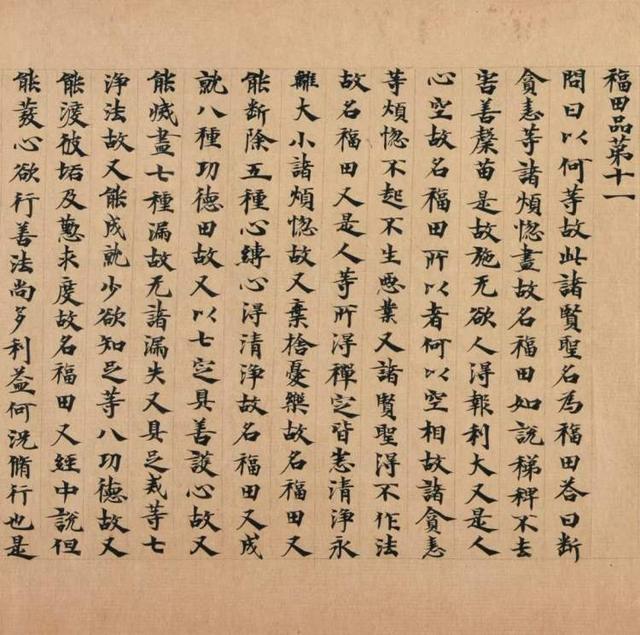 福田品苐十一
問曰以何等故此諸賢聖名為福田荅曰断
貪恚等諸煩惚盡故名福田如説稊稗不去
害善榖苗是故施无欲人得報利大又是人
心空故名福田所以者何以空相故諸貪恚
等煩惚不起不生惡業又諸賢聖得不作法
故名福田又是人等所得禅定皆悉清淨永
離大小諸煩惚故又棄捨憂樂故名福田又
能断除五種心縛心淂清浄故名福田又成
就八種功徳田故又以七定具善護心故又
能㓕盡七種漏故无諸漏失又具足戒等七
浄法故又能成就少欲知足等八功徳故又
能渡彼㘬及懃求度故名福田又經中説但
能𤼵心欲行善法尚多利益何況脩行也是